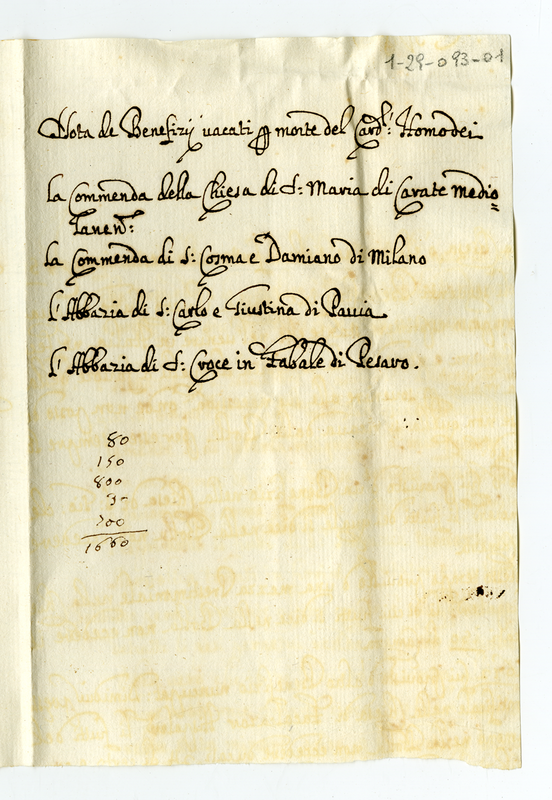 1-29-093-01
Nota de Benefizij uacati p morte del Card.l: Homodei
La Commenda della Chiesa di S: Maria di Carate medio=
lanen:
La Commenda di S: Cosma e Damiano di Milano
L'Abbazia di S: Carlo e Giustina di Pauia
L'Abbazia di S: Croce in di Pesaro.
80
150
800
3-
1660